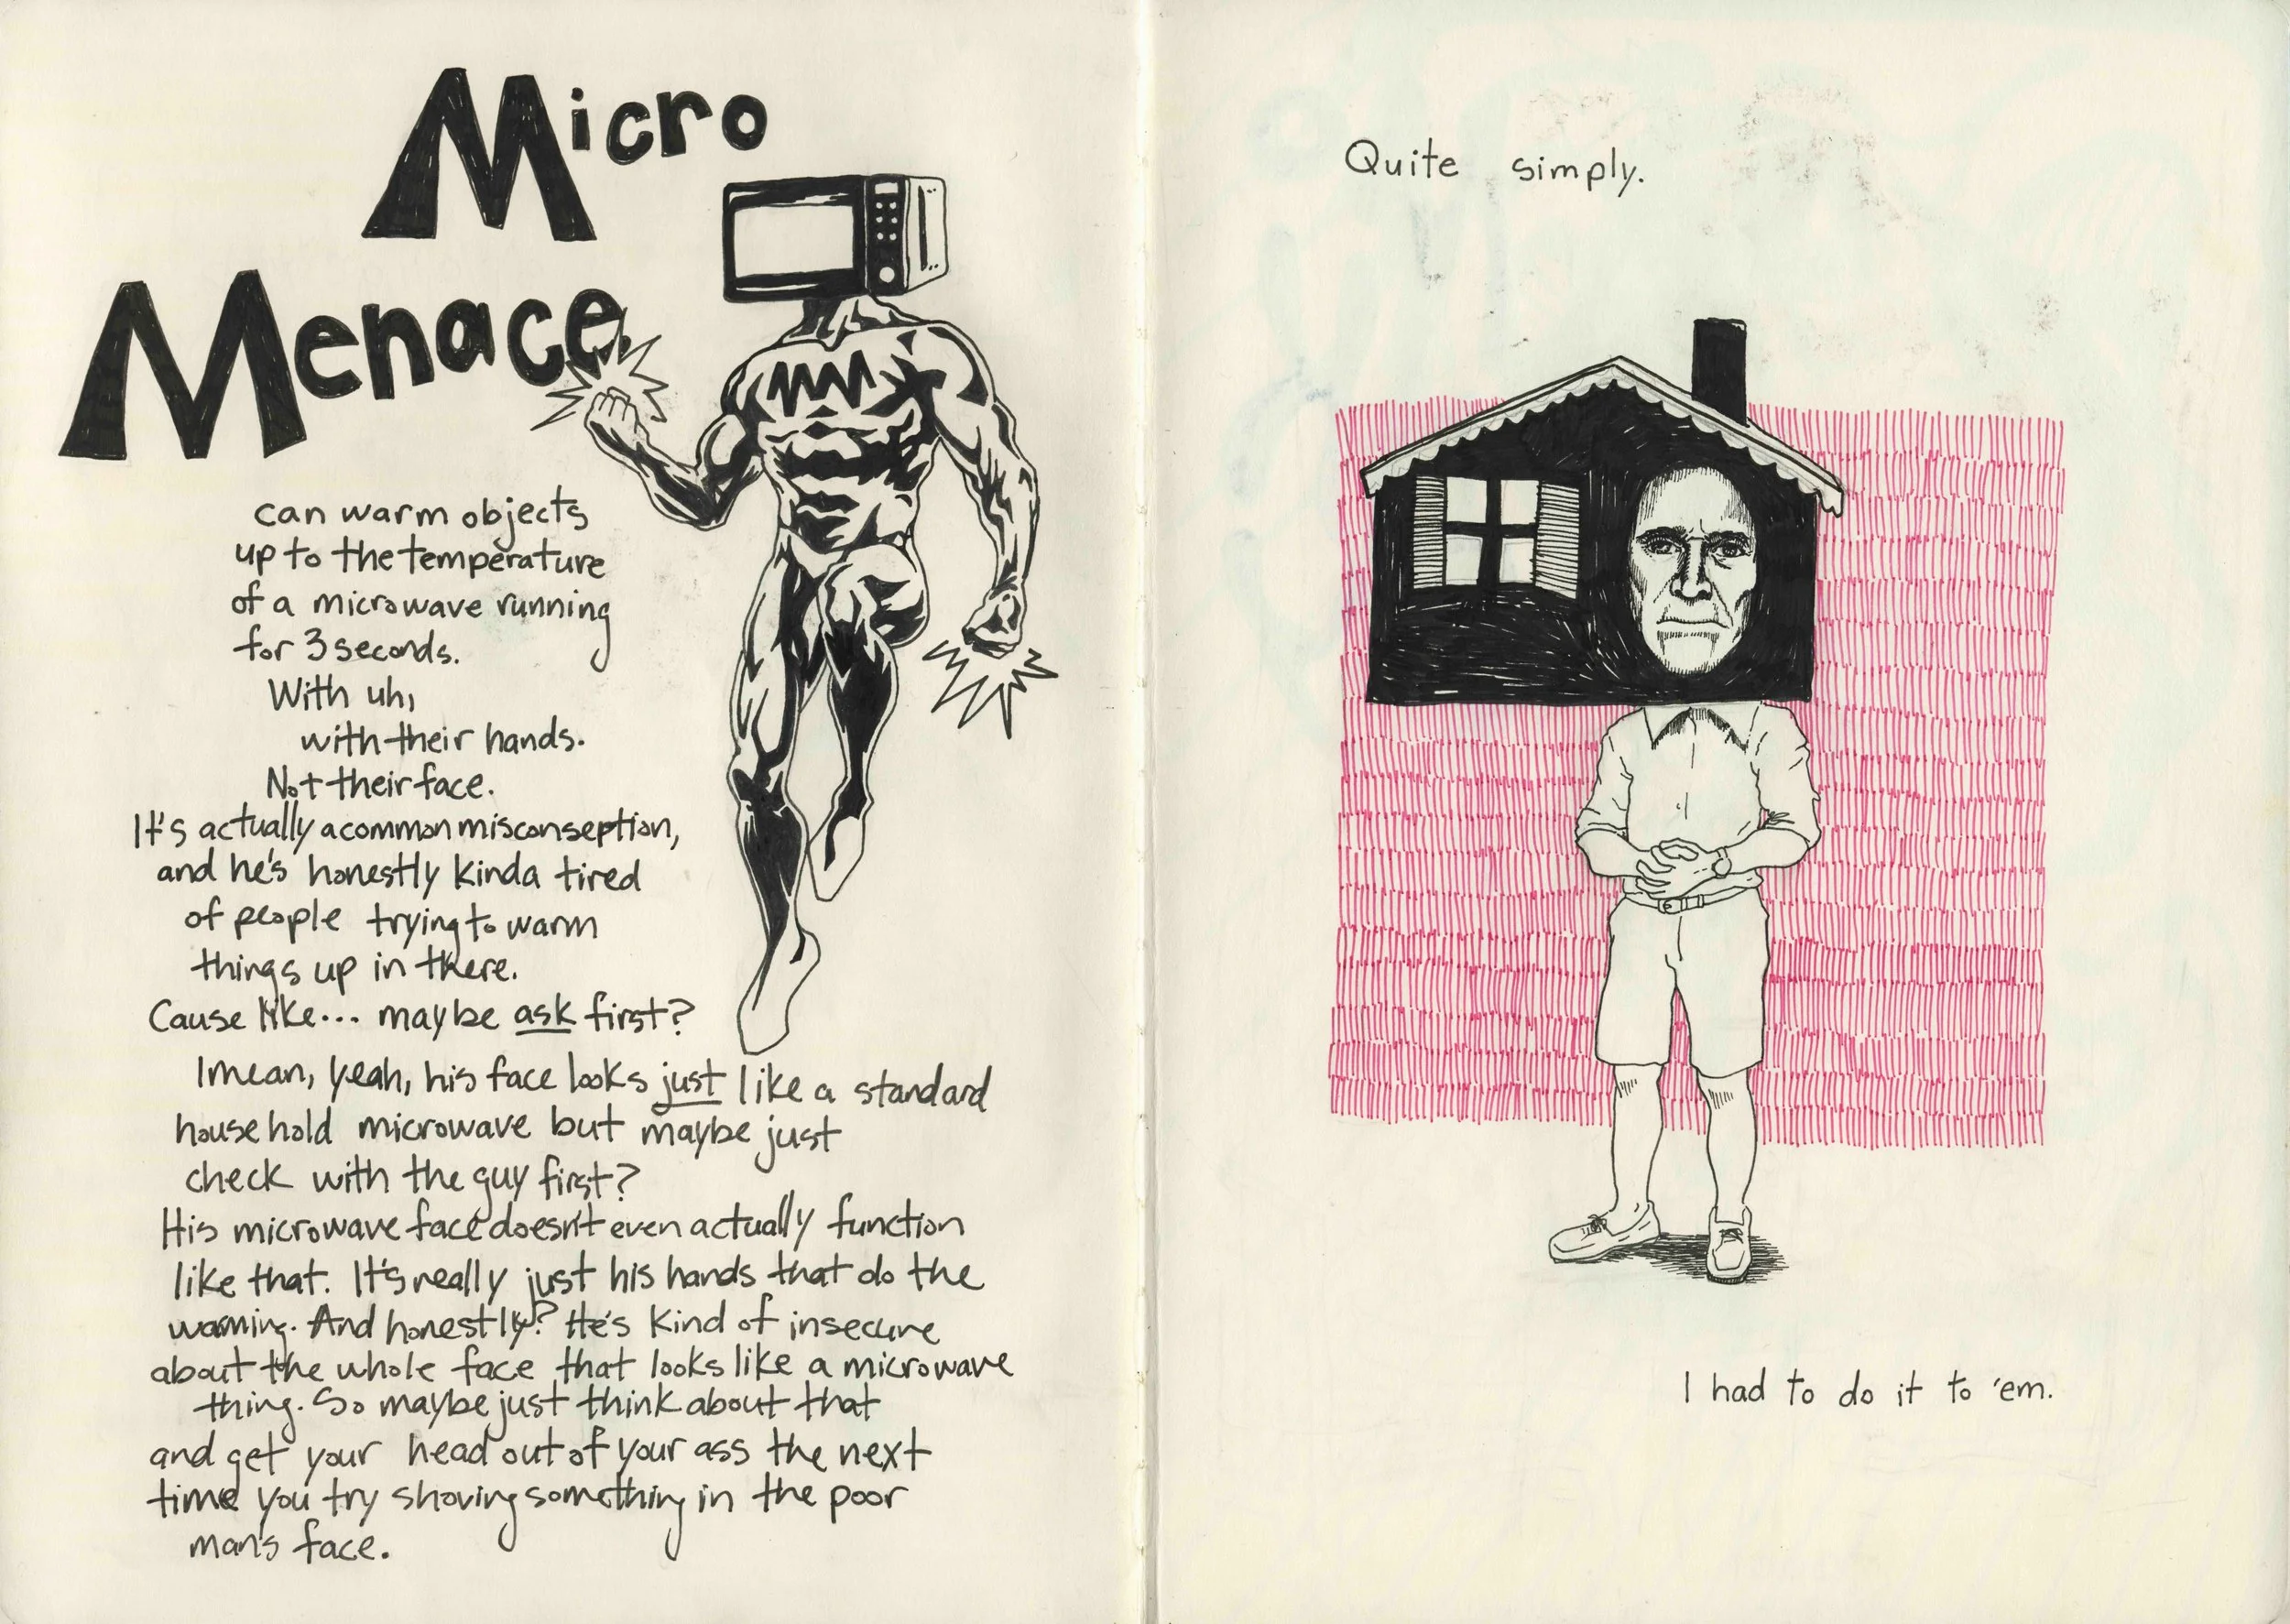 Micro
Menace
can warm objects
up to the temperature
of a microwave running
for 3 seconds.
With uh,
with their hands.
Not their face.
It's actually a common misconseption,
and he's honestly kinda tired
of people trying to warm
things up in there.
Cause like... maybe ask first?
I mean, yeah, his face looks just like a standard
household microwave but maybe just
check with the guy first?
His microwave face doesn't even actually function
like that. It's really just his hands that do the
warming. And honestly? He's kind of insecure
about the whole face that looks like a microwave
thing. So maybe just think about that
and get your head out of your ass the next
time you try shoving something in the poor
man's face.
Quite simply.
I had to do it to 'em.